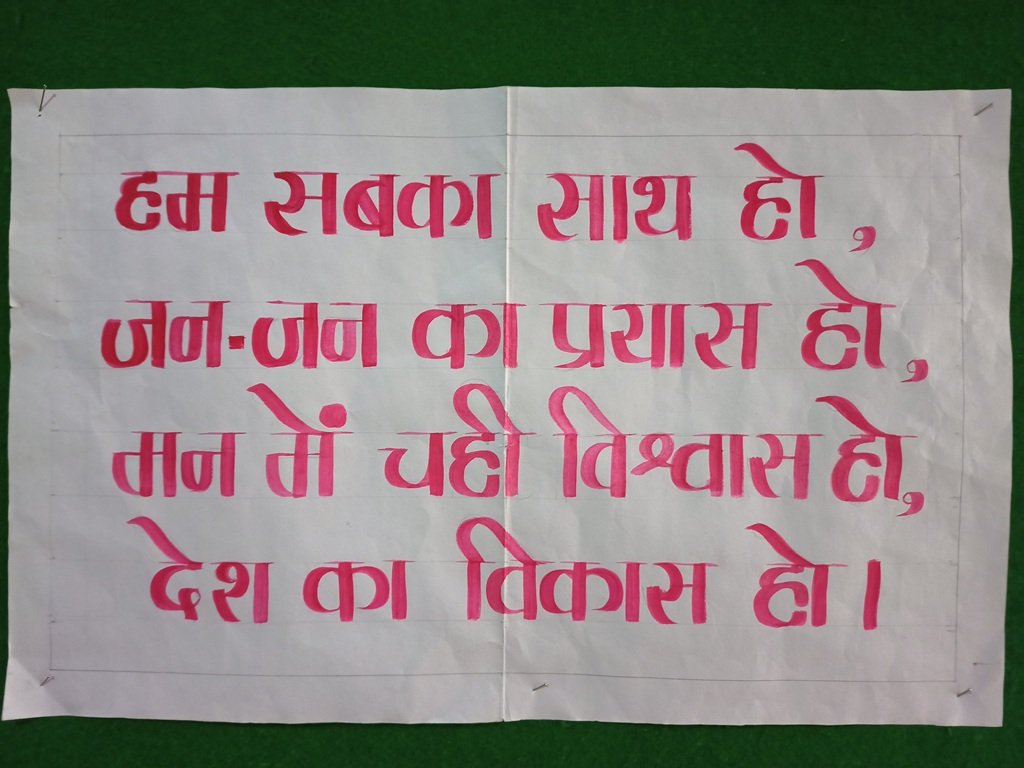 हम सबका साथ हो,
जन-जन का प्रयास हो,
मन में चही विश्वास हो,
देश का विकास हो।